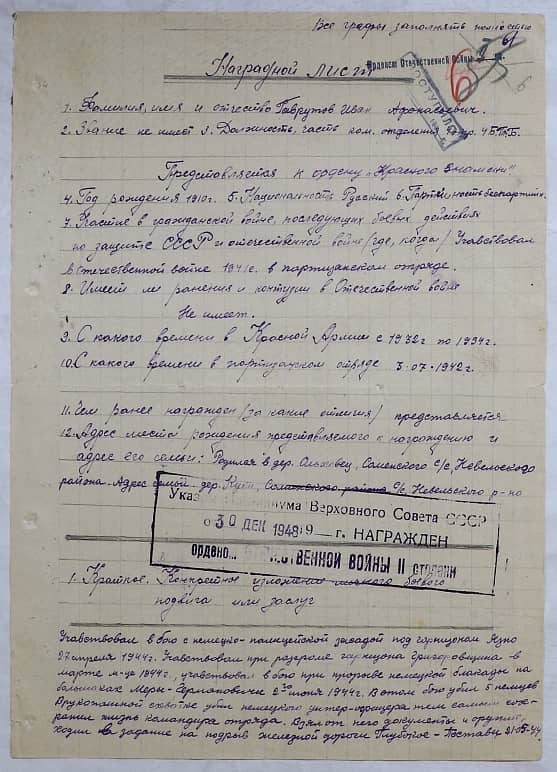 Все графы заполнять полностью
Орденом Отечественной Войны
6
6
Наградной лист
1. Фамилия, имя и отчество Гаврутов Иван Афонасьевич.
2. Звание не имеет 3. Должность, часть ком. отделения 4 БПБ.
Представляется к ордену „Красного Знамени"
4. Год рождения 1910г. 5. Национальность Русский 6. Партийность беспартийн.
7. Участие в гражданской войне, последующих боевых действиях
по защите СССР и отечественной войне (где, когда) Учавствовал
в Отечественной войне 1941г. в партизанском отряде.
8. Имеет ли ранения и контузии в Отечественной войне
Не имеет.
9. С какого времени в Красной Армии с 1932г по 1934г.
10. С какого времени в партизанском отряде 3.07.1942г.
11. Чем ранее награжден (за какие отличия) представляется
12. Адрес места рождения представляемого к награждению и
адрес его семьи: Родился в дер. Ольховец, Соменского с/с, Невельского
района. Адрес семьи дер. с/с, Невельского р-на
Указом Президиума Верховного Совета СССР
о 30 ДЕК 1948 9 — г. НАГРАЖДЕН
орденом ОТЕЧЕСТВЕННОЙ ВОЙНЫ II степени
1. Краткое, Конкретное изложение личного боевого
подвига или заслуг
Учавствовал в бою с немецко-полицейской засадой под гарнизоном Язно
27 апреля 1944г. Учавствовал при разгроме гарнизона Григоровщина в
марте м-це 1944г., учавствовал в бою при прорыве немецкой блокады на
большаках Меры-Германовичи 2го июня 1944г. В этом бою убил 5 немцев
В рукопашной схватке убил немецкого унтер-офицера тем самым сох-
ранил жизнь командира отряда. Взял от него документы и оружие,
ходил в задание на подрыв железной дороги Глубокое - Поставы 21.05.44